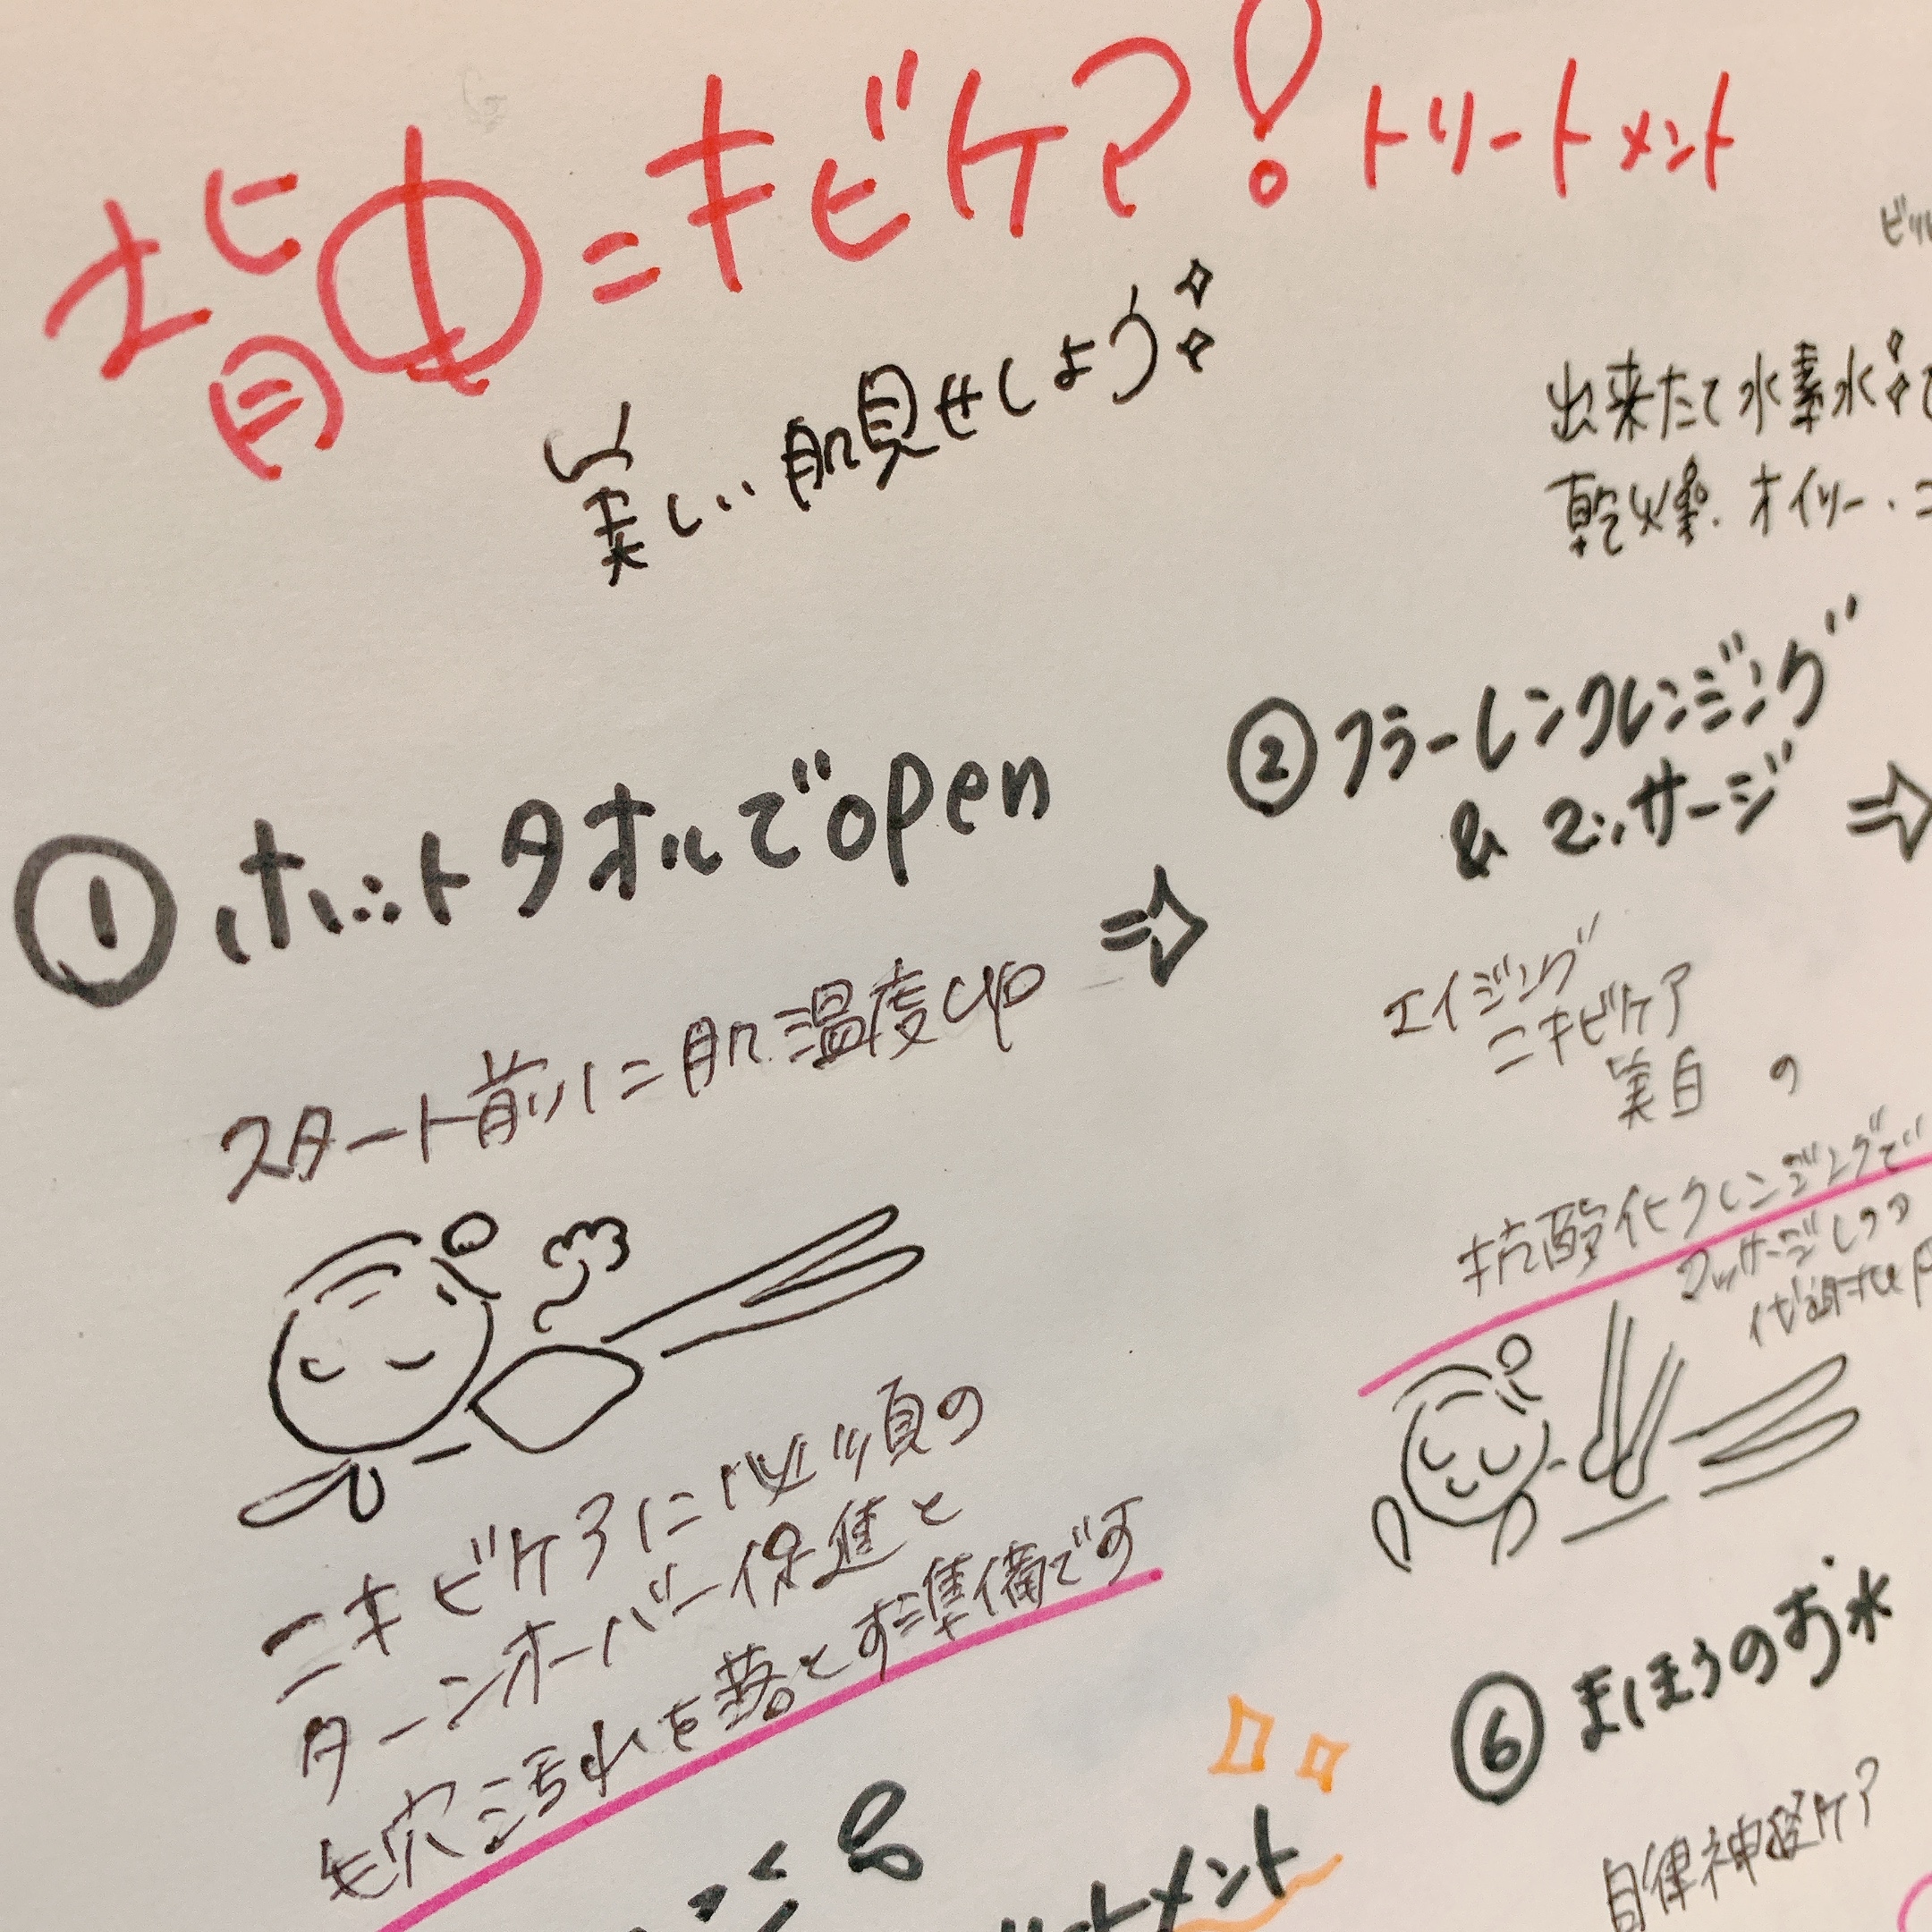 背中ニキビケア!トリートメント
美しい肌見せしよう
出来たて水素水
乾燥.オイリー.
①ホットタオルでopen
スタート前に肌温度up
ニキビケアに必須の
ターンオーバー促進と
毛穴汚れを落とす準備です
②フラーレンクレンジング
&マッサージ
エイジング
ニキビケア
美白の
抗酸化クレンジングで
マッサージしつつ
⑥まほうのお水
自律神経ケア
トメント